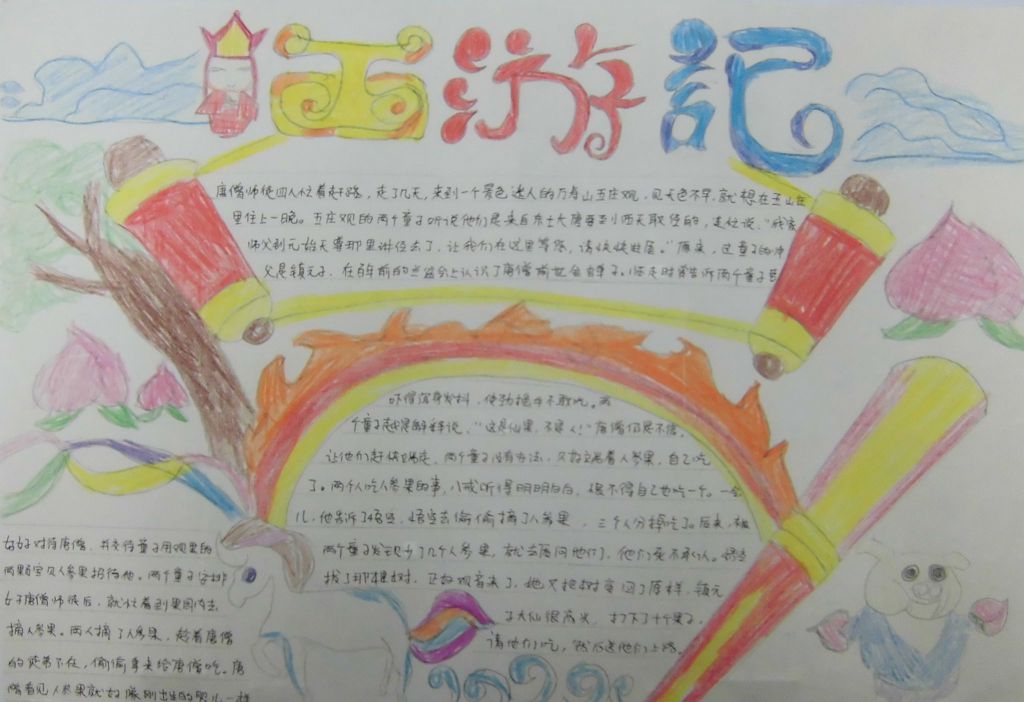 西游記
唐僧师徒四人忙着赶路，走了几天，来到一个景色迷人的万寿山五庄观，见天色不早，就想在五庄
里住上一晚。五庄观的两个童子听说他们是来自东土大唐要到西天取经的，连忙说，“我家
师父到元始天尊那里讲经去了，让我们在这里等您，请快快进屋。”原来，这童子的师
父是镇元子，在百年前的盂盆会上认识了唐僧前世金蝉子。临走时告诉两个童子要
好好对待唐僧，并吩咐童子用观里的
两颗宝贝人参果招待他。两个童子安排
好唐僧师徒后，就忙着到果园内去
摘人参果。两人摘了人参果，趁着唐僧
的徒弟不在，偷偷拿来给唐僧吃。唐
僧看见人参果就好像刚出生的婴儿一样
吓得浑身发抖，使劲摇头不敢吃。两
个童子越是解释说，“这是仙果，不是人！”唐僧仍是不信，
让他们赶快端走。两个童子没有办法，只好端着人参果，自己吃
了。两个人吃人参果的事，八戒听得明明白白，恨不得自己也吃一个。一会
儿，他告诉了悟空，悟空去偷偷摘了人参果，三个人分掉吃了。后来，被
两个童子发现少了几个人参果，就去质问他们，他们死不承认。悟空
找了那棵树，正好观音来了，她又把树变回了原样，镇元
子大仙很高兴，打下了十个果子，
请他们吃，然后送他们上路。